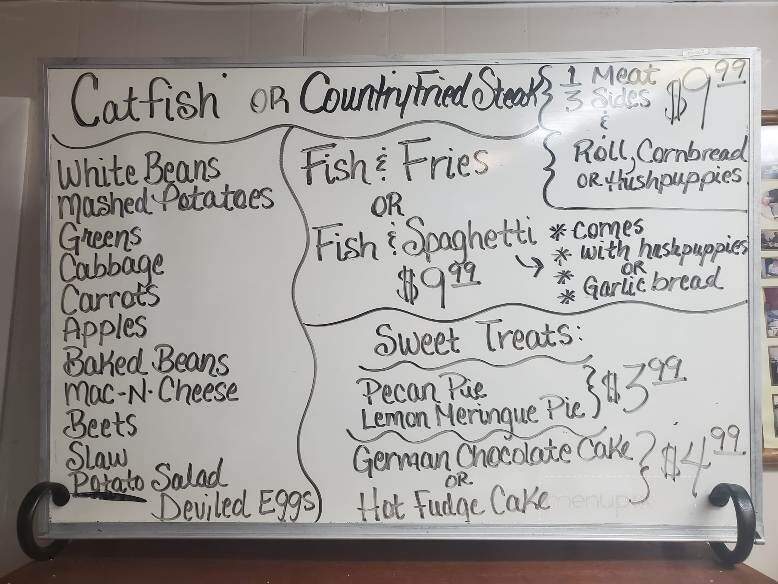 Catfish OR Country Fried Steak
1 Meat
3 Sides
&
Roll, Cornbread
OR Hushpuppies
$9.99
White Beans
Mashed Potatoes
Greens
Cabbage
Carrots
Apples
Baked Beans
Mac-N-Cheese
Beets
Slaw
Potato Salad
Deviled Eggs
Fish & Fries
OR
Fish & Spaghetti
$9.99
* Comes
* with hushpuppies
* OR
* Garlic bread
Sweet Treats:
Pecan Pie
Lemon Meringue Pie
$3.99
German Chocolate Cake
OR
Hot Fudge Cake
$4.99